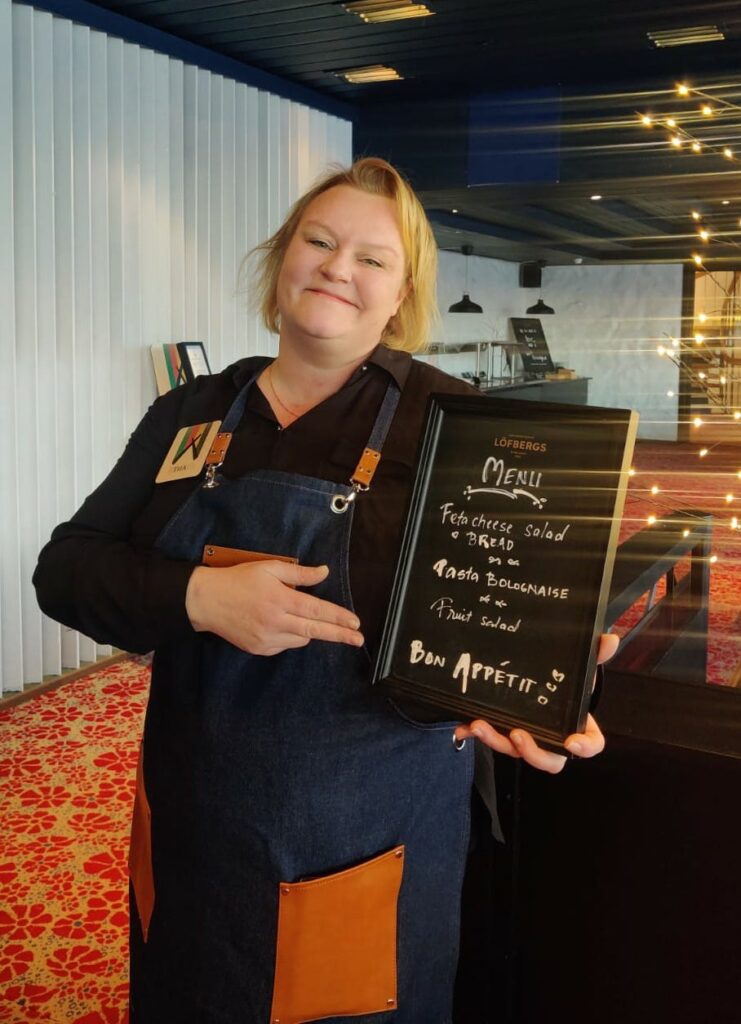 LÖFBERGS
MENU
Feta cheese salad
BREAD
Pasta BOLOGNAISE
Fruit salad
BON APPÉTIT